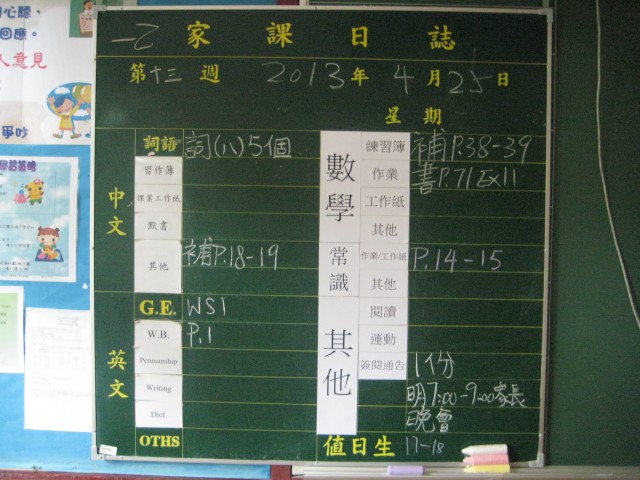 一乙 家課日誌
第十三週 2013年4月25日
星期
中文
詞語 詞(八)5個
習作簿
課業工作紙
默書
其他 補P.18-19
英文
G.E. WS1
W.B. P.1
Penmanship
Writing
Dict.
OTHS
數學
練習簿 補P.38-39
作業 書P.71 Ex11
工作紙
其他
常識
作業/工作紙 P.14-15
其他
其他
閱讀
運動
簽閱通告 1份
明7:00-9:00家長
晚會
值日生 17-18
心聽,
回應。
人意見
爭吵
學習策略